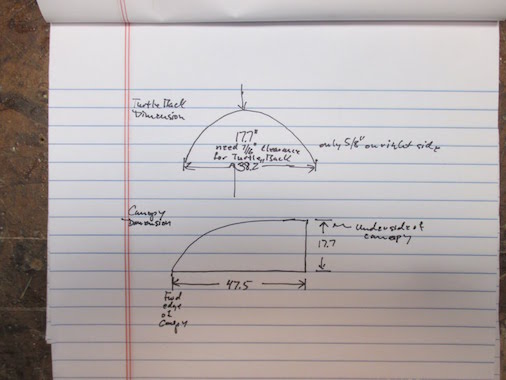 Turtle Back
Dimension
17.7"
need 7/16" clearance
for Turtle Back
38.2"
only 5/8" on right side
Canopy
Dimension
Underside of
canopy
17.7
47.5
Fwd
edge
of
Canopy